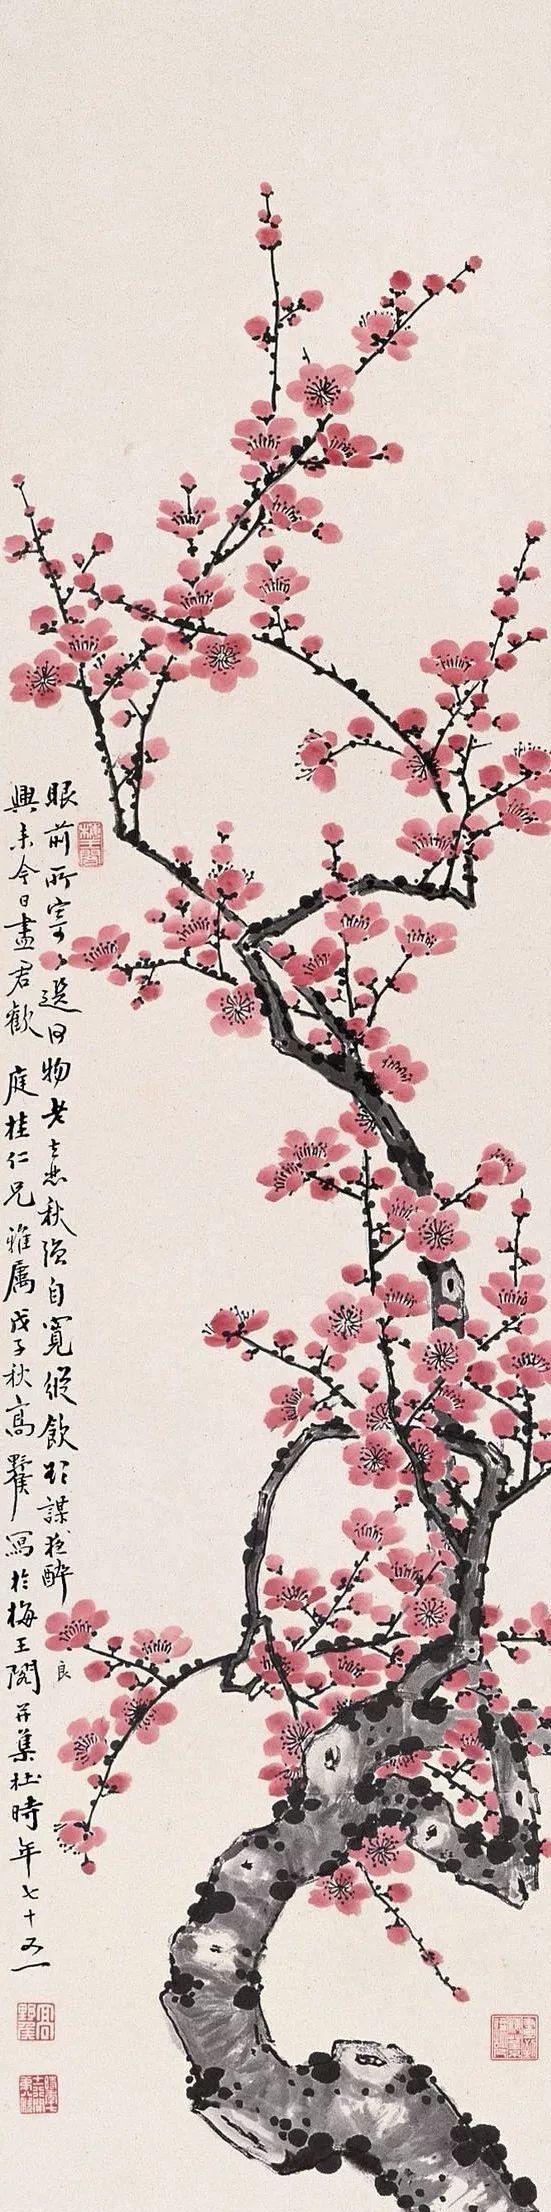 眼前所寄選何物老去悲秋强自寬縱飲欲謀夜醉
良
興來今日盡君歡 庭桂仁兄雅屬戊子秋高野侯寫於梅王閣并集杜時年七十又一
梅王閣